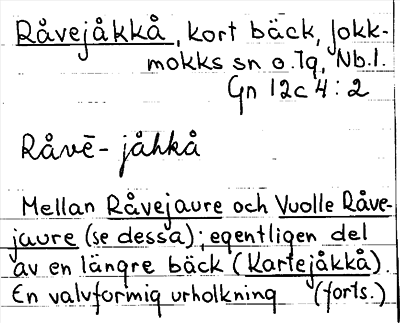 Råvejåkkå, kort bäck, Jokk-
mokks sn o. lq, Nb.l.
Gn 12c 4:2
Råvē- jåhkå
Mellan Råvejaure och Vuolle Råve-
jaure (se dessa); egentligen del
av en längre bäck (Kartejåkkå).
En valvformig urholkning (forts.)